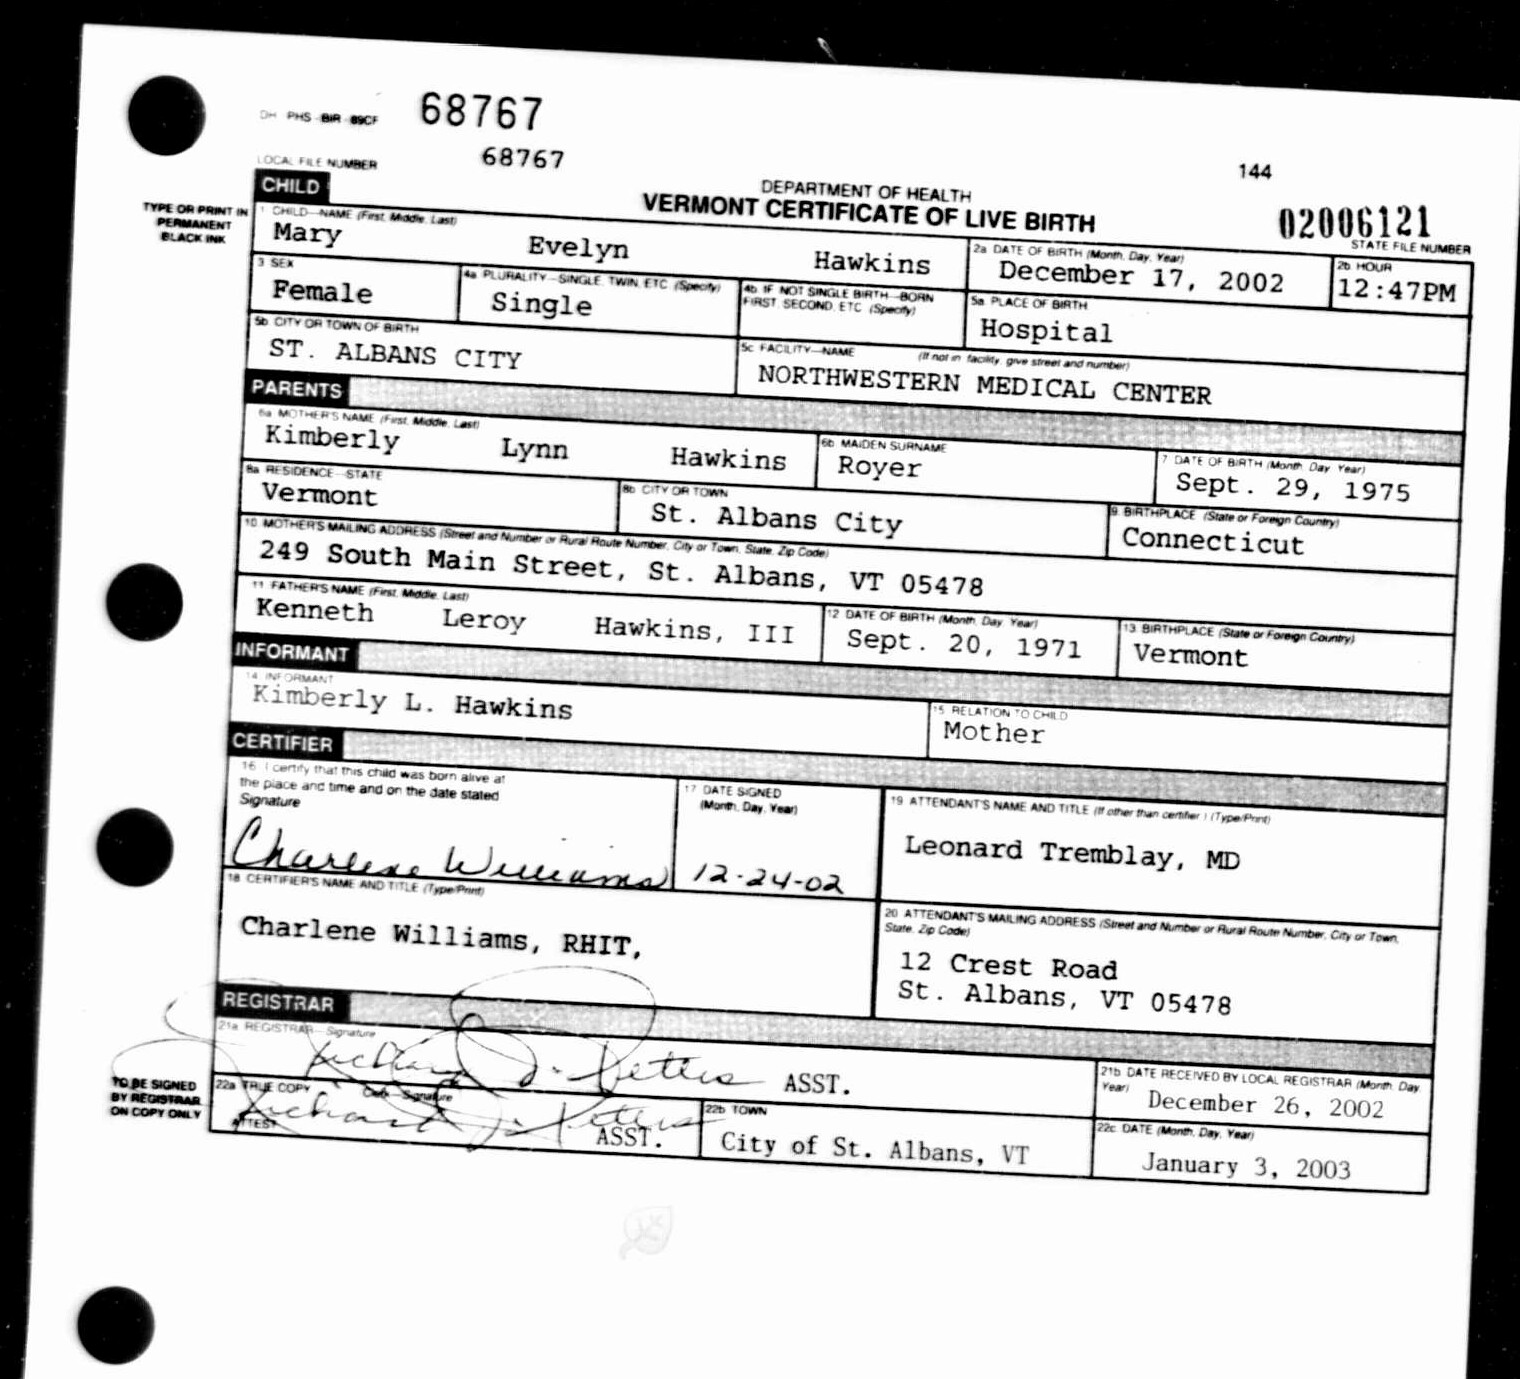 DH - PHS - BIR - 89CF 68767
LOCAL FILE NUMBER 68767
144
CHILD
DEPARTMENT OF HEALTH
VERMONT CERTIFICATE OF LIVE BIRTH
02006121
STATE FILE NUMBER
TYPE OR PRINT IN
PERMANENT
BLACK INK
1 CHILD—NAME (First, Middle, Last)
Mary Evelyn Hawkins
2a DATE OF BIRTH (Month, Day, Year)
December 17, 2002
2b HOUR
12:47PM
3 SEX
Female
4a PLURALITY—SINGLE, TWIN, ETC (Specify)
Single
4b IF NOT SINGLE BIRTH—BORN
FIRST, SECOND, ETC (Specify)
5a PLACE OF BIRTH
Hospital
5b CITY OR TOWN OF BIRTH
ST. ALBANS CITY
5c FACILITY—NAME (If not in facility, give street and number)
NORTHWESTERN MEDICAL CENTER
PARENTS
6a MOTHER'S NAME (First, Middle, Last)
Kimberly Lynn Hawkins
6b MAIDEN SURNAME
Royer
7 DATE OF BIRTH (Month, Day, Year)
Sept. 29, 1975
8a RESIDENCE—STATE
Vermont
8b CITY OR TOWN
St. Albans City
9 BIRTHPLACE (State or Foreign Country)
Connecticut
10 MOTHER'S MAILING ADDRESS (Street and Number or Rural Route Number, City or Town, State, Zip Code)
249 South Main Street, St. Albans, VT 05478
11 FATHER'S NAME (First, Middle, Last)
Kenneth Leroy Hawkins, III
12 DATE OF BIRTH (Month, Day, Year)
Sept. 20, 1971
13 BIRTHPLACE (State or Foreign Country)
Vermont
INFORMANT
14 INFORMANT
Kimberly L. Hawkins
15 RELATION TO CHILD
Mother
CERTIFIER
16 I certify that this child was born alive at
the place and time and on the date stated
Signature
Charlene Williams
17 DATE SIGNED
(Month, Day, Year)
12-24-02
18 CERTIFIER'S NAME AND TITLE (Type/Print)
Charlene Williams, RHIT,
19 ATTENDANT'S NAME AND TITLE (If other than certifier) (Type/Print)
Leonard Tremblay, MD
20 ATTENDANT'S MAILING ADDRESS (Street and Number or Rural Route Number, City or Town,
State, Zip Code)
12 Crest Road
St. Albans, VT 05478
REGISTRAR
21a REGISTRAR—Signature
ASST.
21b DATE RECEIVED BY LOCAL REGISTRAR (Month, Day,
Year)
December 26, 2002
TO BE SIGNED
BY REGISTRAR
ON COPY ONLY
22a TRUE COPY Signature
ATTEST
ASST.
22b TOWN
City of St. Albans, VT
22c DATE (Month, Day, Year)
January 3, 2003